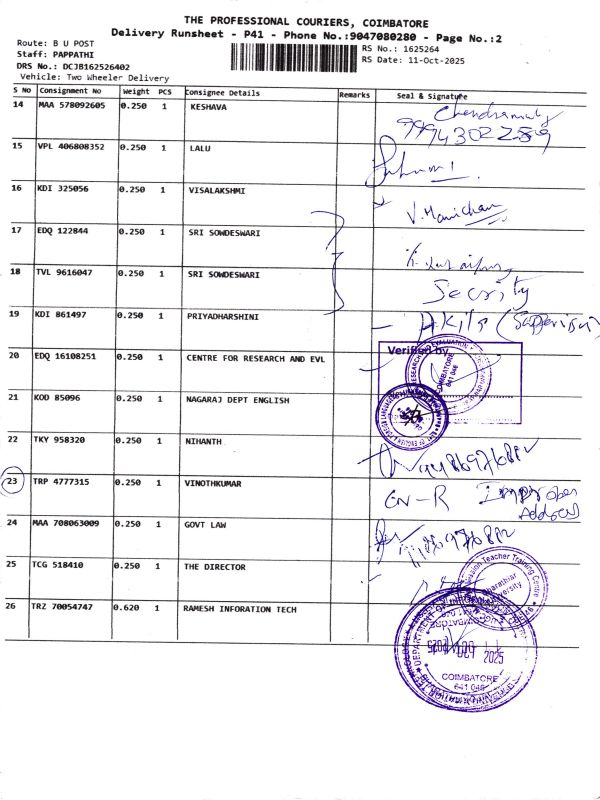 THE PROFESSIONAL COURIERS, COIMBATORE
Delivery Runsheet - P41 - Phone No.:9047080280 - Page No.:2
Route: B U POST
Staff: PAPPATHI
DRS No.: DCJB162526402
Vehicle: Two Wheeler Delivery
RS No.: 1625264
RS Date: 11-Oct-2025
S No Consignment No Weight PCS Consignee Details Remarks Seal & Signature
14 MAA 578092605 0.250 1 KESHAVA
9994302289
15 VPL 406808352 0.250 1 LALU
16 KDI 325056 0.250 1 VISALAKSHMI
17 EDQ 122844 0.250 1 SRI SOWDESWARI
18 TVL 9616047 0.250 1 SRI SOWDESWARI
Security
19 KDI 861497 0.250 1 PRIYADHARSHINI
20 EDQ 16108251 0.250 1 CENTRE FOR RESEARCH AND EVL
Verified by
COIMBATORE
641 046
21 KOD 85096 0.250 1 NAGARAJ DEPT ENGLISH
22 TKY 958320 0.250 1 NIHANTH
23 TRP 4777315 0.250 1 VINOTHKUMAR
CN-R Improper
Address
24 MAA 708063009 0.250 1 GOVT LAW
25 TCG 518410 0.250 1 THE DIRECTOR
Teacher Training Centre
26 TRZ 70054747 0.620 1 RAMESH INFORATION TECH
2025
COIMBATORE
641 046